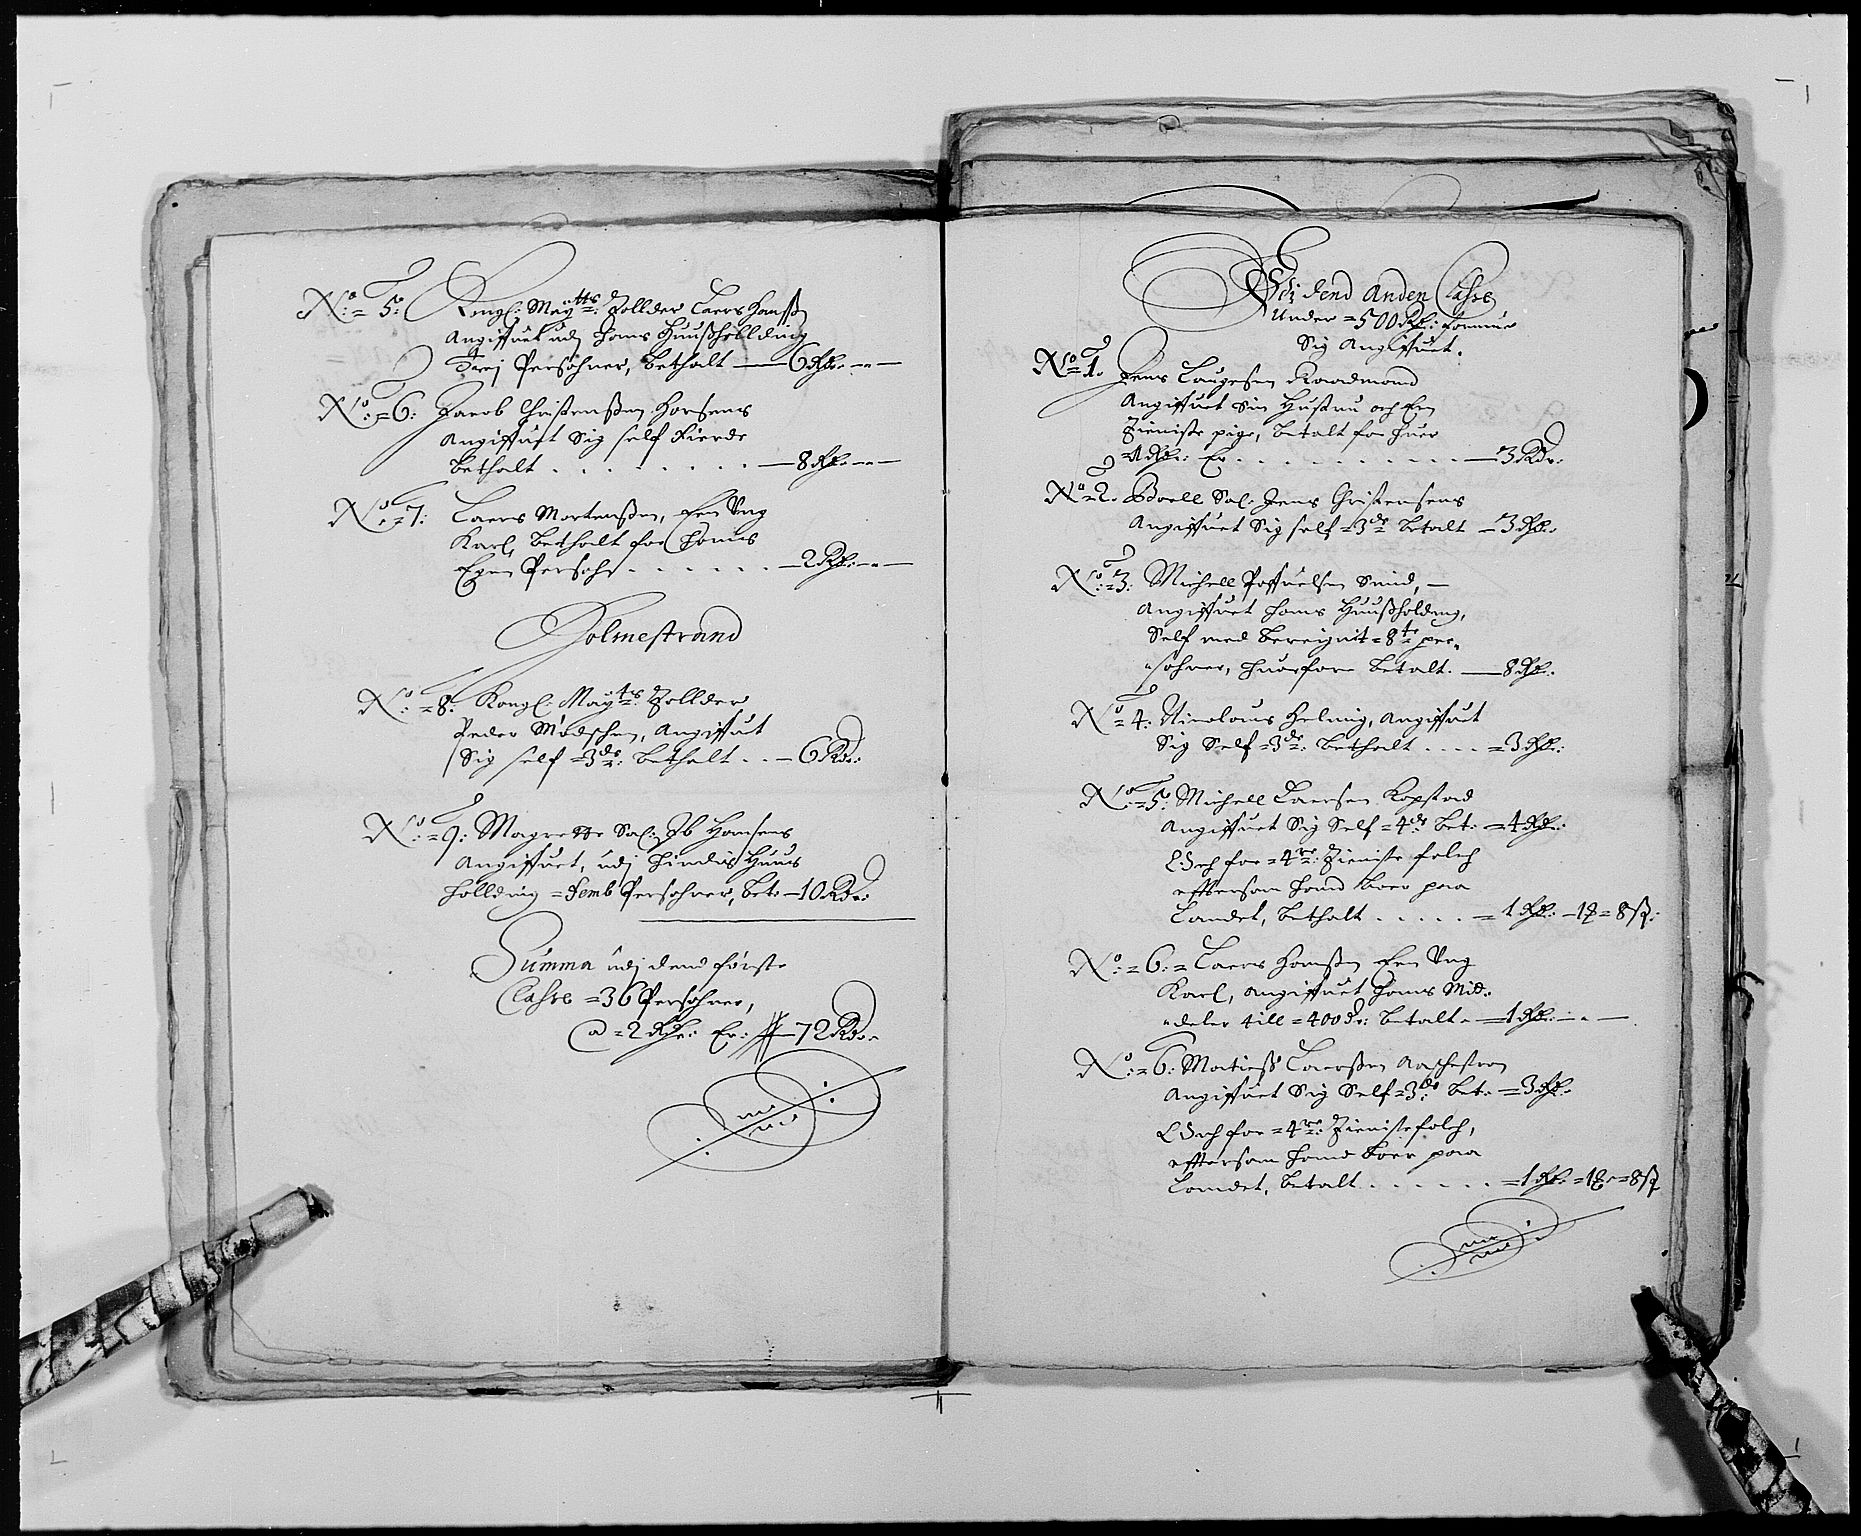 No: 5: Kongl: Maytts: Zollder Laers Hanssen
Angiffuet udj hans Huussholding
Trej Persohner, bethalt — 6 Rdr: — —
No: 6: Jacob Christenssen Horsens
Angiffuet Sig self Fierde
bethalt . . . . . . . . — 8 Rdr: — —
No: 7: Laers Mortenssen, Een Ung
Karl, bethalt for hans
Egen Persohn . . . . . . — 2 Rdr: — —
Holmestrand
No: = 8: Kongl: Maytts: Zollder
Peder Madschen, Angiffuet
Sig self = 3de: bethalt . . — 6 Rdr:
No: = 9: Magrette Sal: Ib Hansens
Angiffuet, udj hindis Huus
holding = Femb Persohner, bet: — 10 Rdr:
Summa udj dend første
Classe = 36 Persohner,
a = 2 Rdr: Er: — 72 Rdr:
Udj dend Anden Classe
Under = 500 Rdr: formue
Sig Angiffuet.
No = 1. Jens Laugesen Raadmand
Angiffuet Sin Hustru och Een
Tieniste pige, betalt for huer
1 Rdr: Er . . . . . . . . — 3 Rdr:
No = 2. Boell Sal: Jens Christensens
Angiffuet Sig self = 3de betalt — 3 Rdr:
No: = 3: Michell Poffuelsen Smid, —
Angiffuet hans Huussholding,
Self med bereignit = 8te per=
=sohner, huorfore betalt. — 8 Rdr:
No = 4: Nicolaus Helwig, Angiffuet
Sig Self = 3de: bethalt . . . . = 3 Rdr:
No: = 5: Michell Laersen Kopstad
Angiffuet Sig Self = 4de bet: = 4 Rdr:
Och for = 4re: Tieniste folch
effttersom hand boer paa
Landet, bethalt . . . . . = 1 Rdr: — 1 = 8 sz:
No: = 6: = Laers Hanssen Een Ung
Karl, Angiffuet hans Mid=
=deler till = 400 dr: betalt = — 1 Rdr: — — —
No: = 6: Matiess Laerssen
Angiffuet Sig Self = 3de bet: = 3 Rdr:
Och for = 4re: Tienistefolch,
effttersom hand boer paa
Landet, betalt . . . . . . = 1 Rdr: = 1 = 8 sz